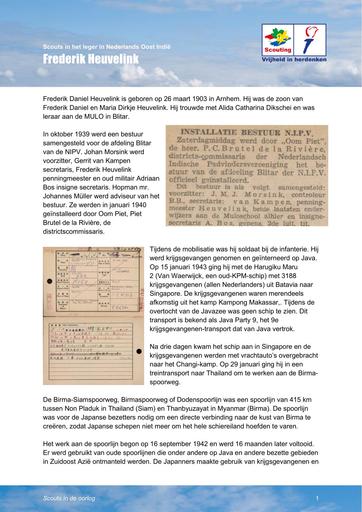 Scouts in het leger in Nederlands Oost Indië
Frederik Heuvelink
Scouting
Vrijheid in herdenken
Frederik Daniel Heuvelink is geboren op 26 maart 1903 in Arnhem. Hij was de zoon van
Frederik Daniel en Maria Dirkje Heuvelink. Hij trouwde met Alida Catharina Dikschei en was
leraar aan de MULO in Blitar.
In oktober 1939 werd een bestuur
samengesteld voor de afdeling Blitar
van de NIPV. Johan Morsink werd
voorzitter, Gerrit van Kampen
secretaris, Frederik Heuvelink
penningmeester en oud militair Adriaan
Bos insigne secretaris. Hopman mr.
Johannes Müller werd adviseur van het
bestuur. Ze werden in januari 1940
geïnstalleerd door Oom Piet, Piet
Brutel de la Rivière, de
districtscommissaris.
INSTALLATIE BESTUUR N.I.P.V.
Zaterdagmiddag werd door „Oom Piet",
de heer P. C. Brutel de la Rivière,
districts-commissaris der Nederlandsch
Indische Padvindersvereeniging het be-
stuur van de afdeeling Blitar der N.I.P.V.
officieel geïnstalleerd.
Dit bestuur is als volgt samengesteld:
voorzitter: J. M. J. Morsink, controleur
B.B., secretaris: van Kampen, penning-
meester Heuvelink, beide laatsten onder-
wijzers aan de Muloschool alhier en insigne-
secretaris A. Bos, gepens. 2de luit. tit.
Tijdens de mobilisatie was hij soldaat bij de infanterie. Hij
werd krijgsgevangen genomen en geïnterneerd op Java.
Op 15 januari 1943 ging hij met de Harugiku Maru
2 (Van Waerwijck, een oud-KPM-schip) met 3188
krijgsgevangenen (allen Nederlanders) uit Batavia naar
Singapore. De krijgsgevangenen waren merendeels
afkomstig uit het kamp Kampong Makassar,. Tijdens de
overtocht van de Javazee was geen schip te zien. Dit
transport is bekend als Java Party 9, het 9e
krijgsgevangenen-transport dat van Java vertrok.
Na drie dagen kwam het schip aan in Singapore en de
krijgsgevangenen werden met vrachtauto's overgebracht
naar het Changi-kamp. Op 29 januari ging hij in een
treintransport naar Thailand om te werken aan de Birma-
spoorweg.
De Birma-Siamspoorweg, Birmaspoorweg of Dodenspoorlijn was een spoorlijn van 415 km
tussen Non Pladuk in Thailand (Siam) en Thanbyuzayat in Myanmar (Birma). De spoorlijn
was voor de Japanse bezetters nodig om een directe verbinding naar de kust van Birma te
creëren, zodat Japanse schepen niet meer om het hele schiereiland hoefden te varen.
Het werk aan de spoorlijn begon op 16 september 1942 en werd 16 maanden later voltooid.
Er werd gebruikt van oude spoorlijnen die onder andere op Java en andere bezette gebieden
in Zuidoost Azië ontmanteld werden. De Japanners maakte gebruik van krijgsgevangenen en
Scouts in de oorlog
1